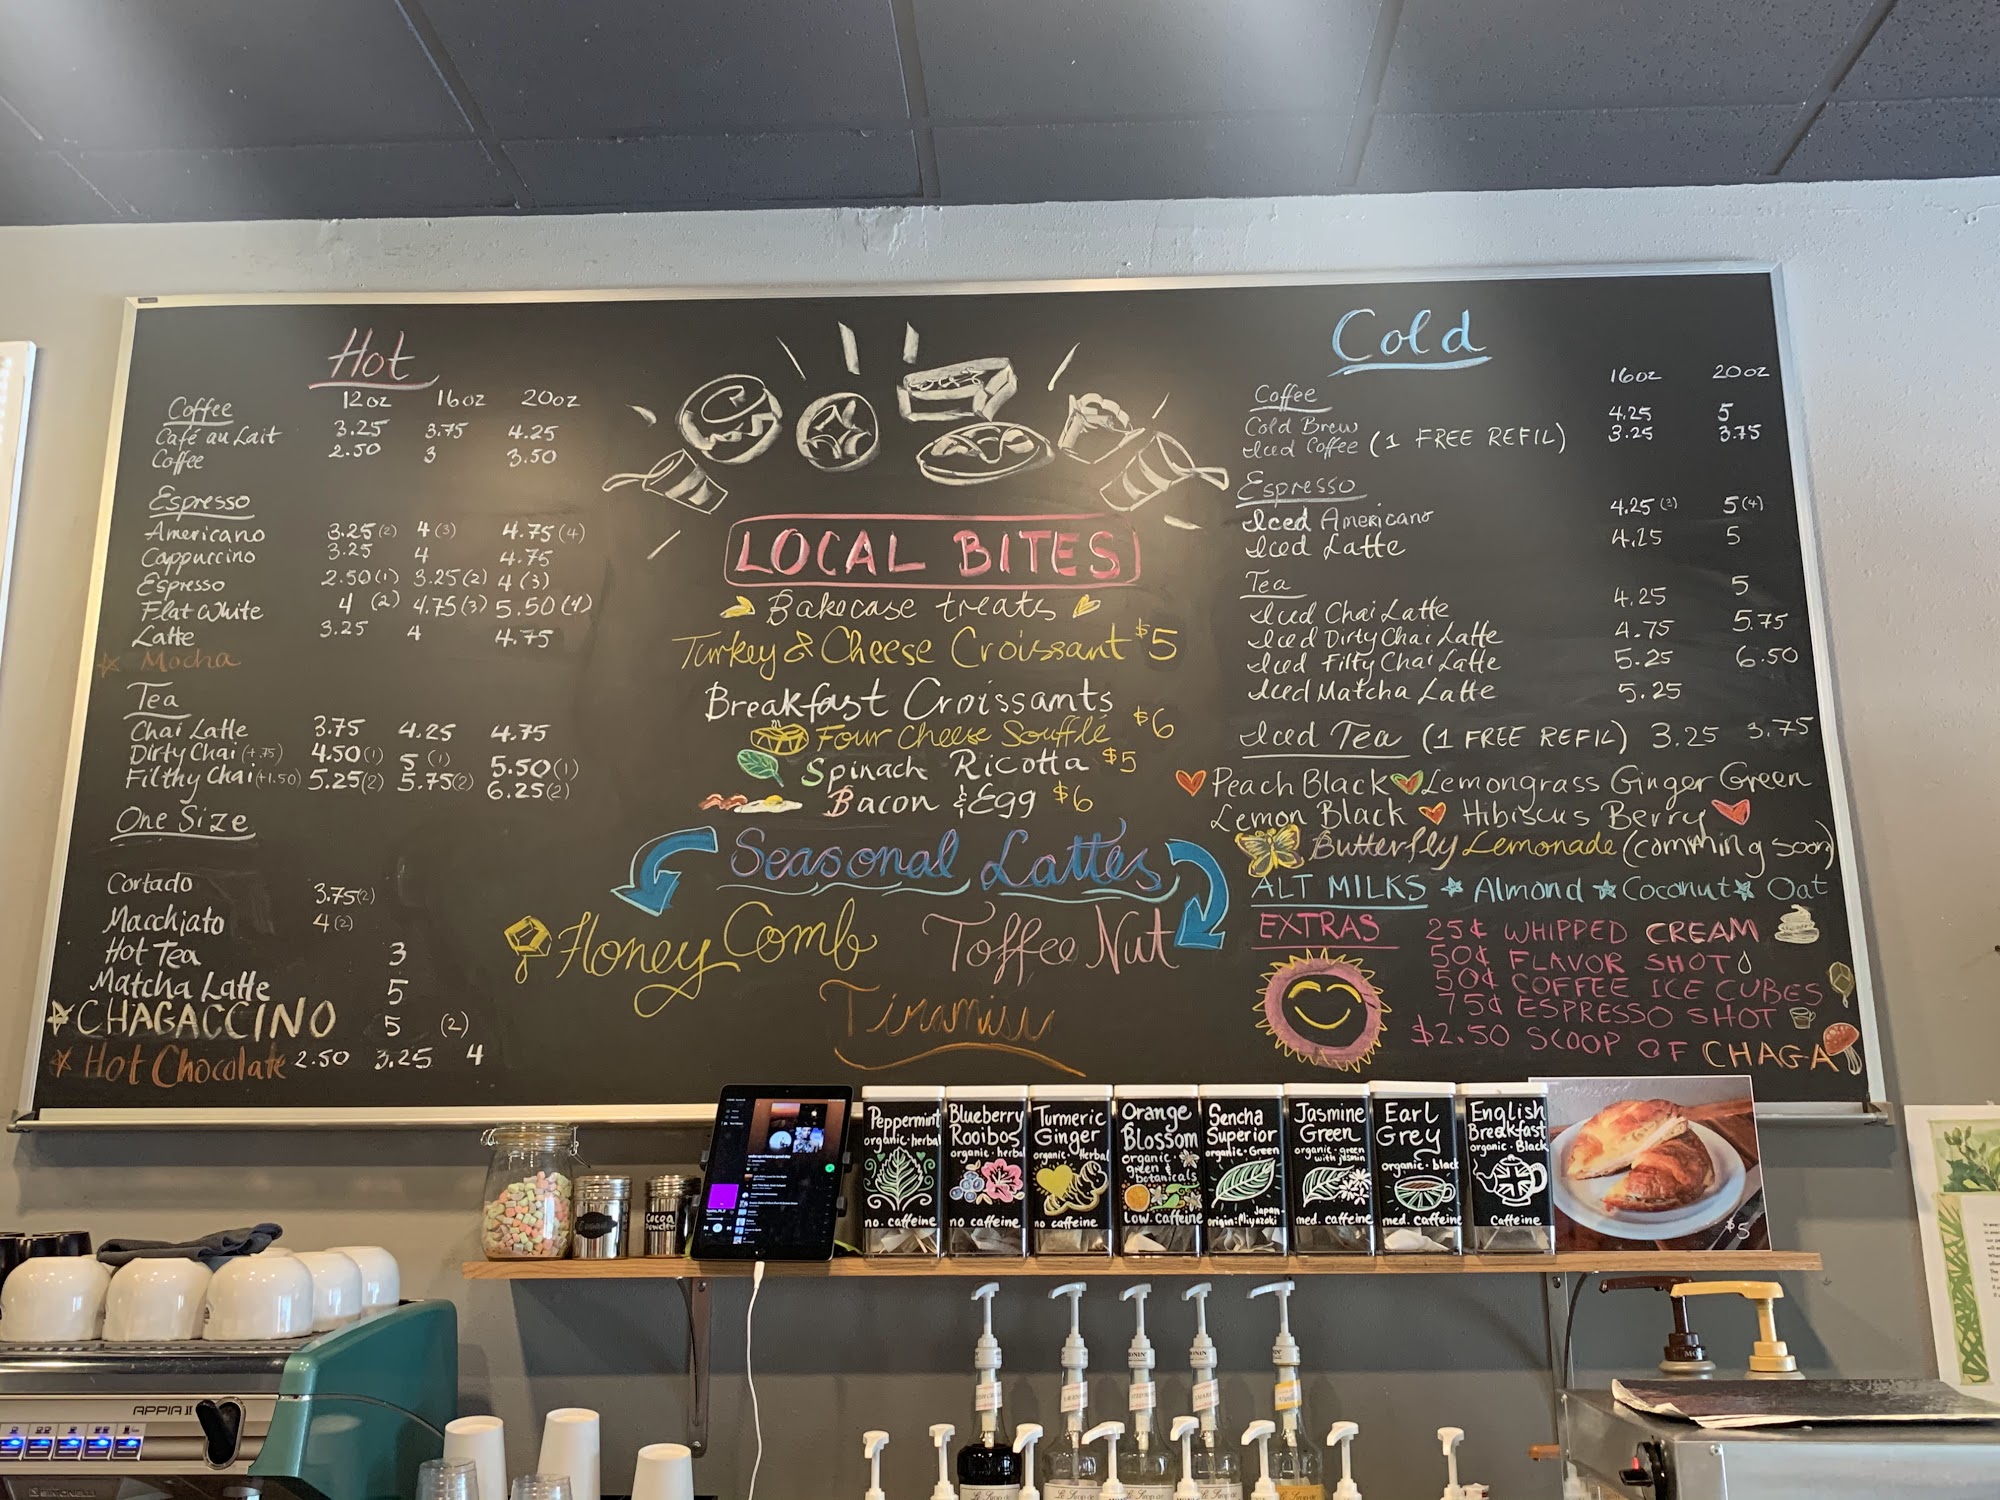 Hot
12oz 16oz 20oz
Coffee
Café au Lait 3.25 3.75 4.25
Coffee 2.50 3 3.50
Espresso
Americano 3.25(2) 4(3) 4.75(4)
Cappuccino 3.25 4 4.75
Espresso 2.50(1) 3.25(2) 4(3)
Flat White 4 (2) 4.75(3) 5.50(4)
Latte 3.25 4 4.75
Mocha
Tea
Chai Latte 3.75 4.25 4.75
Dirty Chai(+.75) 4.50(1) 5(1) 5.50(1)
Filthy Chai(+1.50) 5.25(2) 5.75(2) 6.25(2)
One Size
Cortado 3.75(2)
Macchiato 4(2)
Hot Tea 3
Matcha Latte 5
CHAGACCINO 5 (2)
Hot Chocolate 2.50 3.25 4
LOCAL BITES
Bakecase treats
Turkey & Cheese Croissant $5
Breakfast Croissants
Four Cheese Soufflé $6
Spinach Ricotta $5
Bacon & Egg $6
Seasonal Lattes
Honey Comb Toffee Nut
Tiramisu
Cold
16oz 20oz
Coffee
Cold Brew 4.25 5
Iced Coffee (1 FREE REFIL) 3.25 3.75
Espresso
Iced Americano 4.25(3) 5(4)
Iced Latte 4.25 5
Tea
Iced Chai Latte 4.25 5
Iced Dirty Chai Latte 4.75 5.75
Iced Filty Chai Latte 5.25 6.50
Iced Matcha Latte 5.25
Iced Tea (1 FREE REFIL) 3.25 3.75
Peach Black Lemongrass Ginger Green
Lemon Black Hibiscus Berry
Butterfly Lemonade (comming soon)
ALT MILKS Almond Coconut Oat
EXTRAS
25¢ WHIPPED CREAM
50¢ FLAVOR SHOT
50¢ COFFEE ICE CUBES
75¢ ESPRESSO SHOT
$2.50 SCOOP OF CHAGA
COCOA POWDER
Peppermint
organic·herbal
no. caffeine
Blueberry
Rooibos
organic·herbal
no caffeine
Turmeric
Ginger
organic·Herbal
no caffeine
Orange
Blossom
organic·
green &
botanicals
Low. caffeine
Sencha
Superior
organic·Green
Japan
origin:Miyazaki
Jasmine
Green
organic·green
with jasmin
med. caffeine
Earl
Grey
organic·black
med. caffeine
English
Breakfast
organic·Black
Caffeine
$5
APPIA II